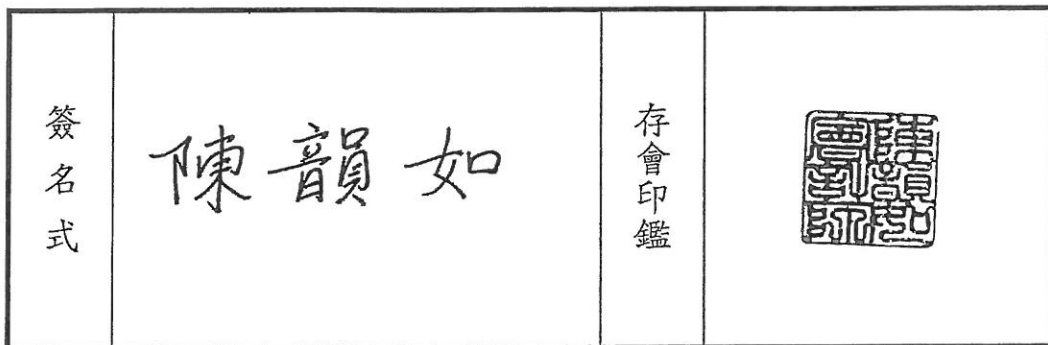 簽名式
陳韻如
存會印鑑
陳韻如
會計師